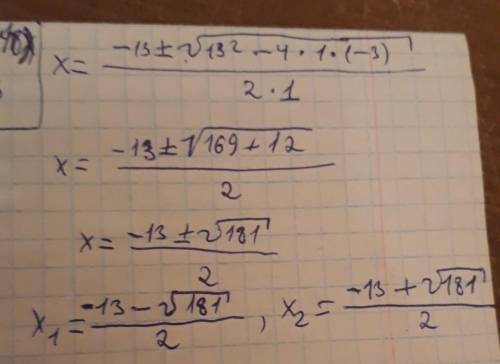 x = (-13 ± √(13² - 4 · 1 · (-3))) / (2 · 1)
x = (-13 ± √(169 + 12)) / 2
x = (-13 ± √181) / 2
x₁ = (-13 - √181) / 2 , x₂ = (-13 + √181) / 2